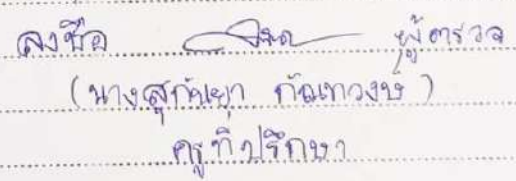 ลงชื่อ ผู้ตรวจ
(นางสุกันยา กัณทวงษ์)
ครูที่ปรึกษา